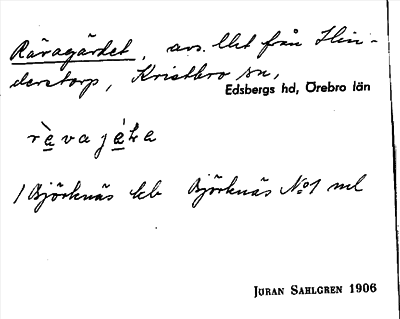 Rävagärdet, avs. lht från Hin-
derstorp, Kristbro sn,
Edsbergs hd, Örebro län
rävajäka
1 Björknäs hb Björknäs № 1 ml
JÖRAN SAHLGREN 1906